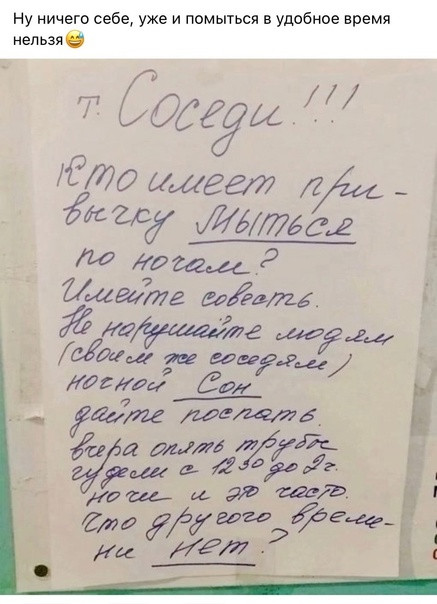 Ну ничего себе, уже и помыться в удобное время
нельзя😅
т. Соседи!!!
Кто имеет при-
вычку Мыться
по ночам?
Имейте совесть.
Не нарушайте людям
(своем же соседям)
ночной Сон
дайте поспать
вчера опять трубы
гудели с 12 30 до 2 ч.
ночи и это часто.
Что другого време-
ни нет?